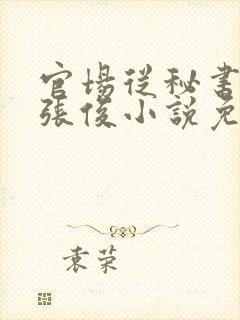 官場從秘書
張俊小說免
袁荣